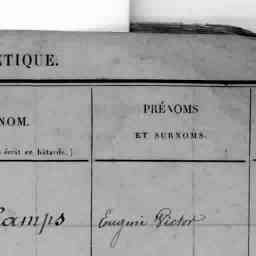 ÉTIQUE.
NOM.
PRÉNOMS
ET SURNOMS.
écrit en bâtarde.)
camps Eugène Victor